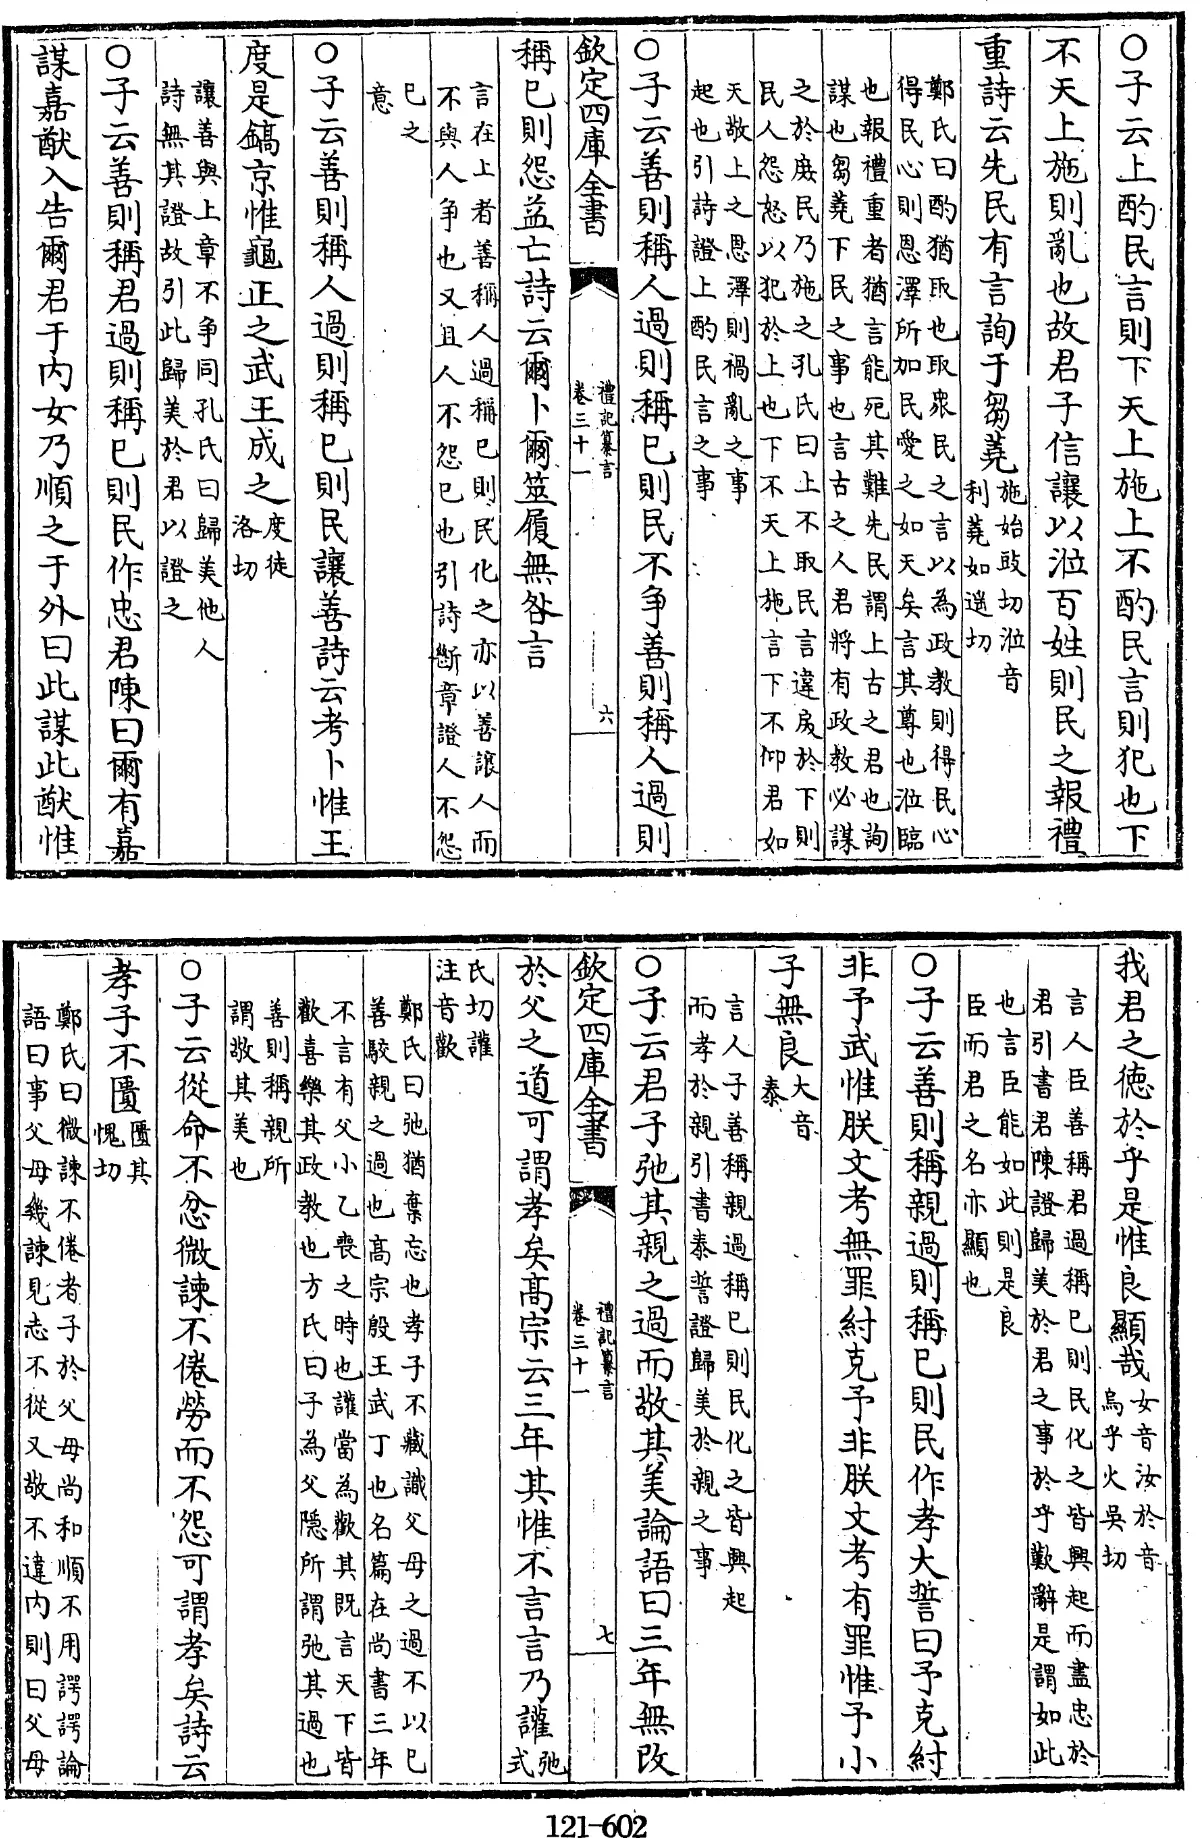 ○子云上酌民言則下天上施上不酌民言則犯也下
不天上施則亂也故君子信讓以涖百姓則民之報禮
重詩云先民有言詢于芻蕘施始豉切涖音
利蕘如遥切
鄭氏曰酌猶取也取衆民之言以為政教則得民心
得民心則恩澤所加民愛之如天矣言其尊也涖臨
也報禮重者猶言能死其難先民謂上古之君也詢
謀也芻蕘下民之事也言古之人君將有政教必謀
之於庶民乃施之孔氏曰上不取民言違戾於下則
民人怨怒以犯於上也下不天上施言下不仰君如
天敬上之恩澤則禍亂之事
起也引詩證上酌民言之事
○子云善則稱人過則稱已則民不争善則稱人過則
欽定四庫全書
禮記纂言
卷三十一
六
稱已則怨益亡詩云爾卜爾筮履無咎言
言在上者善稱人過稱已則民化之亦以善讓人而
不與人争也又且人不怨已也引詩斷章證人不怨
已之
意
○子云善則稱人過則稱已則民讓善詩云考卜惟王
度是鎬京惟龜正之武王成之度徒
洛切
讓善與上章不争同孔氏曰歸美他人
詩無其證故引此歸美於君以證之
○子云善則稱君過則稱已則民作忠君陳曰爾有嘉
謀嘉猷入告爾君于内女乃順之于外曰此謀此猷惟
我君之德於乎是惟良顯哉女音汝於音
烏乎火吳切
言人臣善稱君過稱已則民化之皆興起而盡忠於
君引書君陳證歸美於君之事於乎歎辭是謂如此
也言臣能如此則是良
臣而君之名亦顯也
○子云善則稱親過則稱已則民作孝大誓曰予克紂
非予武惟朕文考無罪紂克予非朕文考有罪惟予小
子無良大音
泰
言人子善稱親過稱已則民化之皆興起
而孝於親引書泰誓證歸美於親之事
○子云君子弛其親之過而敬其美論語曰三年無改
欽定四庫全書
禮記纂言
卷三十一
七
於父之道可謂孝矣高宗云三年其惟不言言乃讙弛
式
氏切讙
注音歡
鄭氏曰弛猶棄忘也孝子不藏識父母之過不以已
善駮親之過也高宗殷王武丁也名篇在尚書三年
不言有父小乙喪之時也讙當為歡其既言天下皆
歡喜樂其政教也方氏曰子為父隠所謂弛其過也
善則稱親所
謂敬其美也
○子云從命不忿微諫不倦勞而不怨可謂孝矣詩云
孝子不匱匱其
愧切
鄭氏曰微諫不倦者子於父母尚和順不用諤諤論
語曰事父母幾諫見志不從又敬不違内則曰父母
121-602